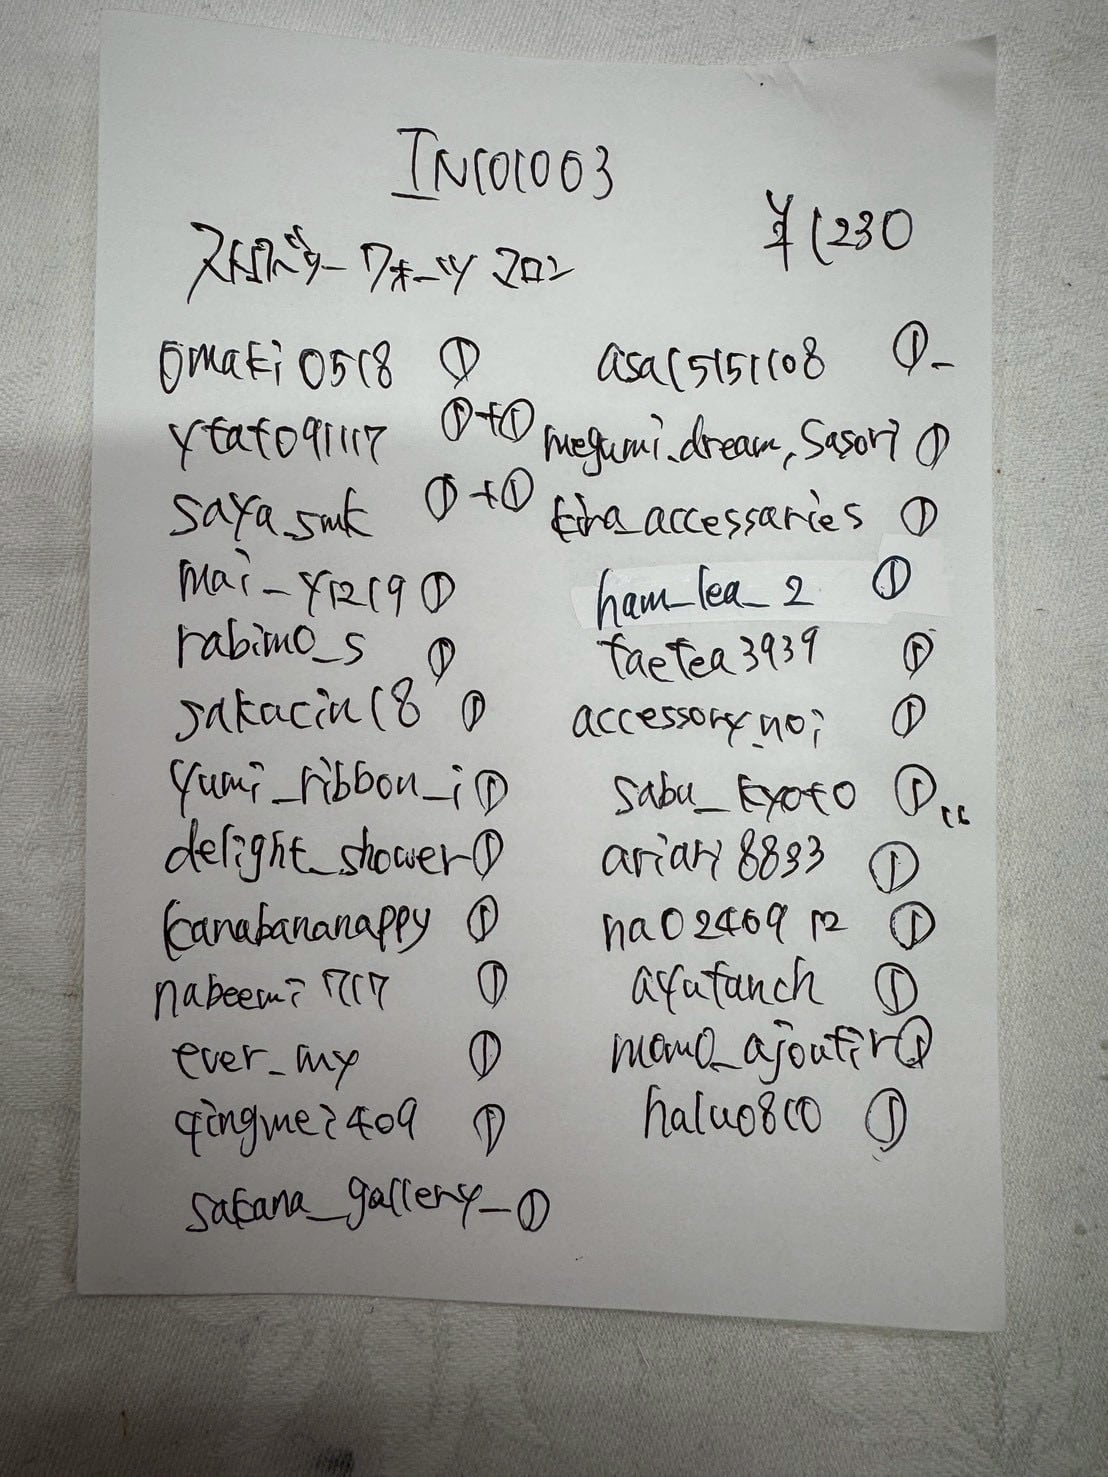 IN101003
¥1230
ストロベリークォーツ マロン
omaki0518 ①
ytat091117 ①+①
saya_smk ①+①
mai_y1219 ①
rabimo_s ①
sakacin18 ①
yumi_ribbon_i ①
delight_shower ①
kanabananappy ①
nabeemi717 ①
ever_my ①
qingmei409 ①
sakana_gallery_ ①
asa15151108 ①
megumi.dream.sasori ①
kira_accessaries ①
ham_lea_2 ①
taetea3939 ①
accessory_noi ①
sabu_kyoto ①
ariari8833 ①
na0240912 ①
ayutanch ①
momo_ajoutir ①
halu0810 ①